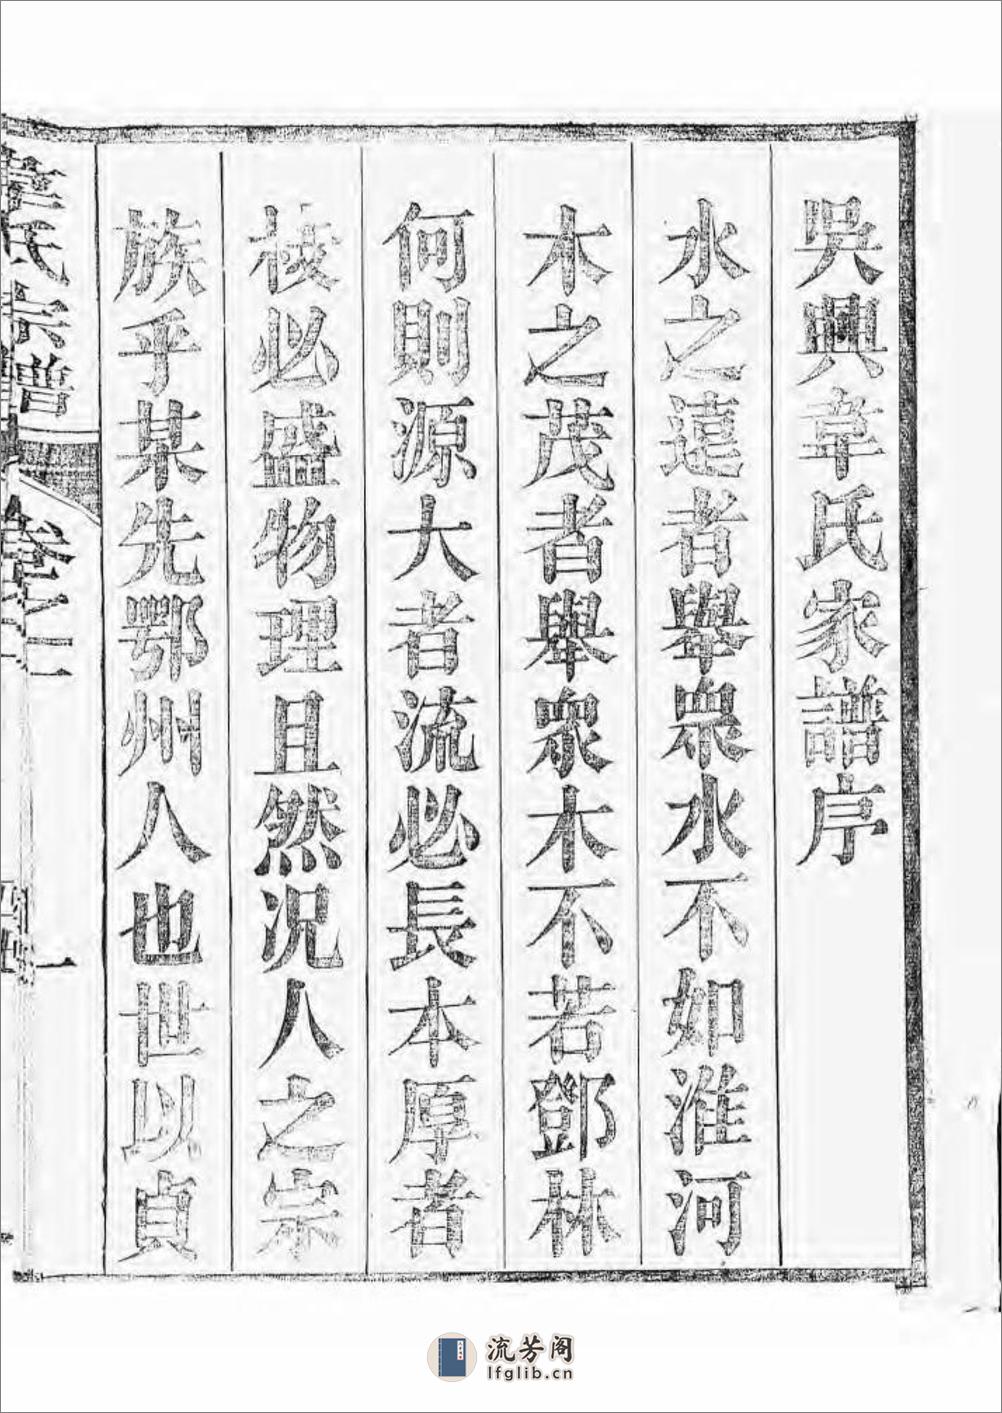 吳興章氏家譜序
水之遠者舉衆水不如淮河
木之茂者舉衆木不若鄧林
何則源大者流必長本厚者
枝必盛物理且然況人之宗
族乎某先鄂州人也世以貞
章氏宗譜 卷之二 一
流芳阁
lfglib.cn